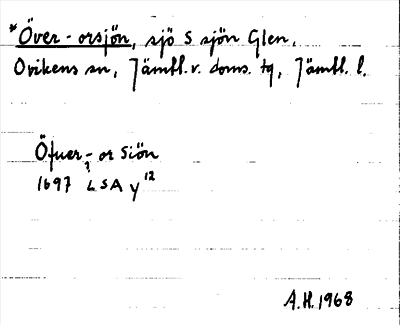 *Över-orsjön, sjö S sjön Glen,
Ovikens sn, Jämtl. v. doms. tg, Jämtl. l.
Öfuer-or Siön
1697 LSA y12
A.H. 1968